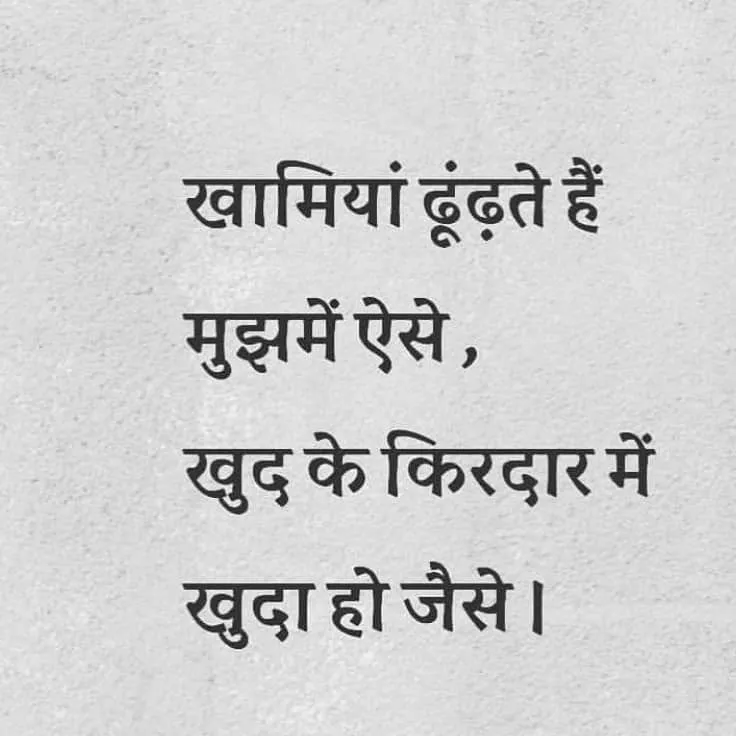 खामियां ढूंढ़ते हैं
मुझमें ऐसे ,
खुद के किरदार में
खुदा हो जैसे ।